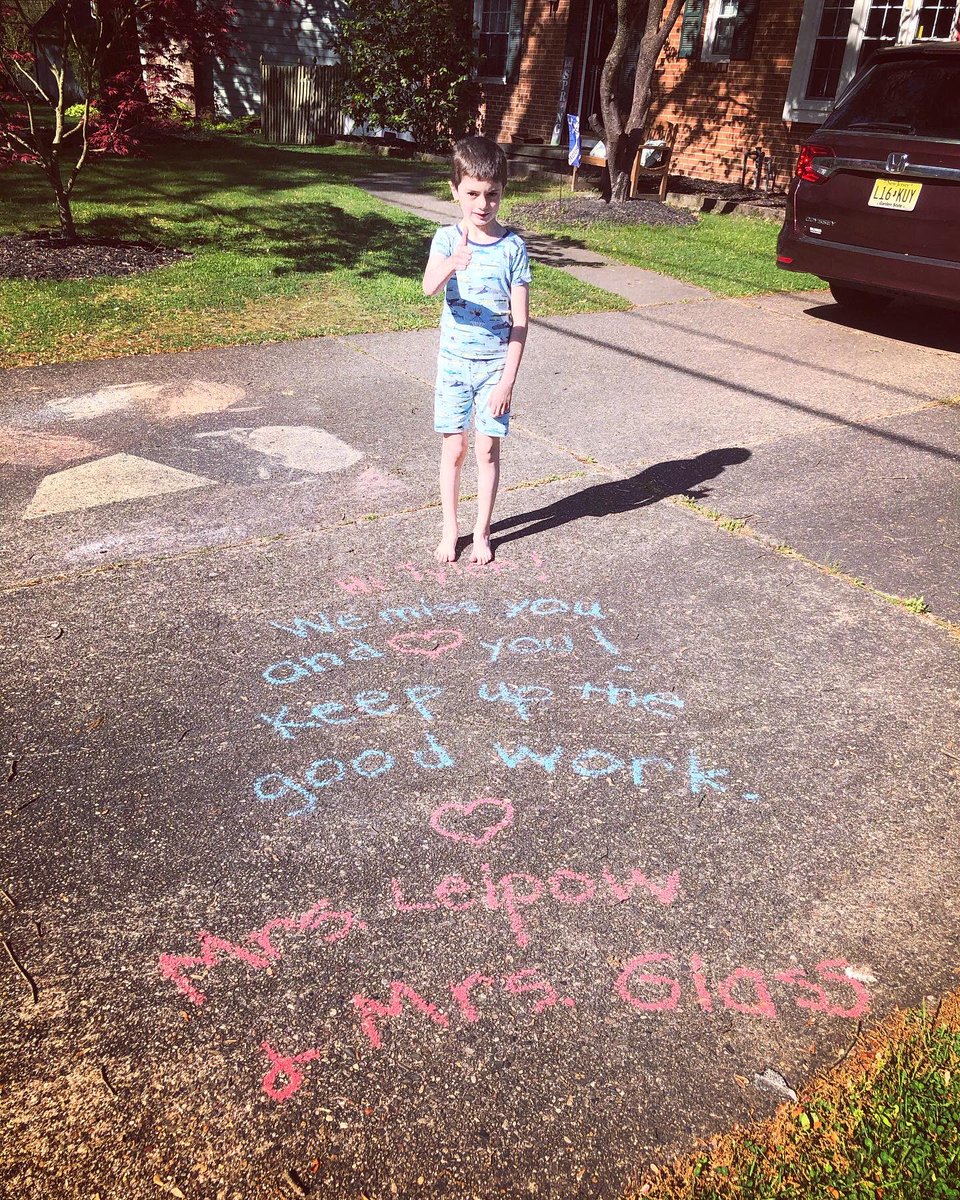 SPL
L16 KUY
Garden State
ODYSSEY
We miss you
and you!
Keep up the
good work.
Mrs. Leipow
& Mrs. Glass